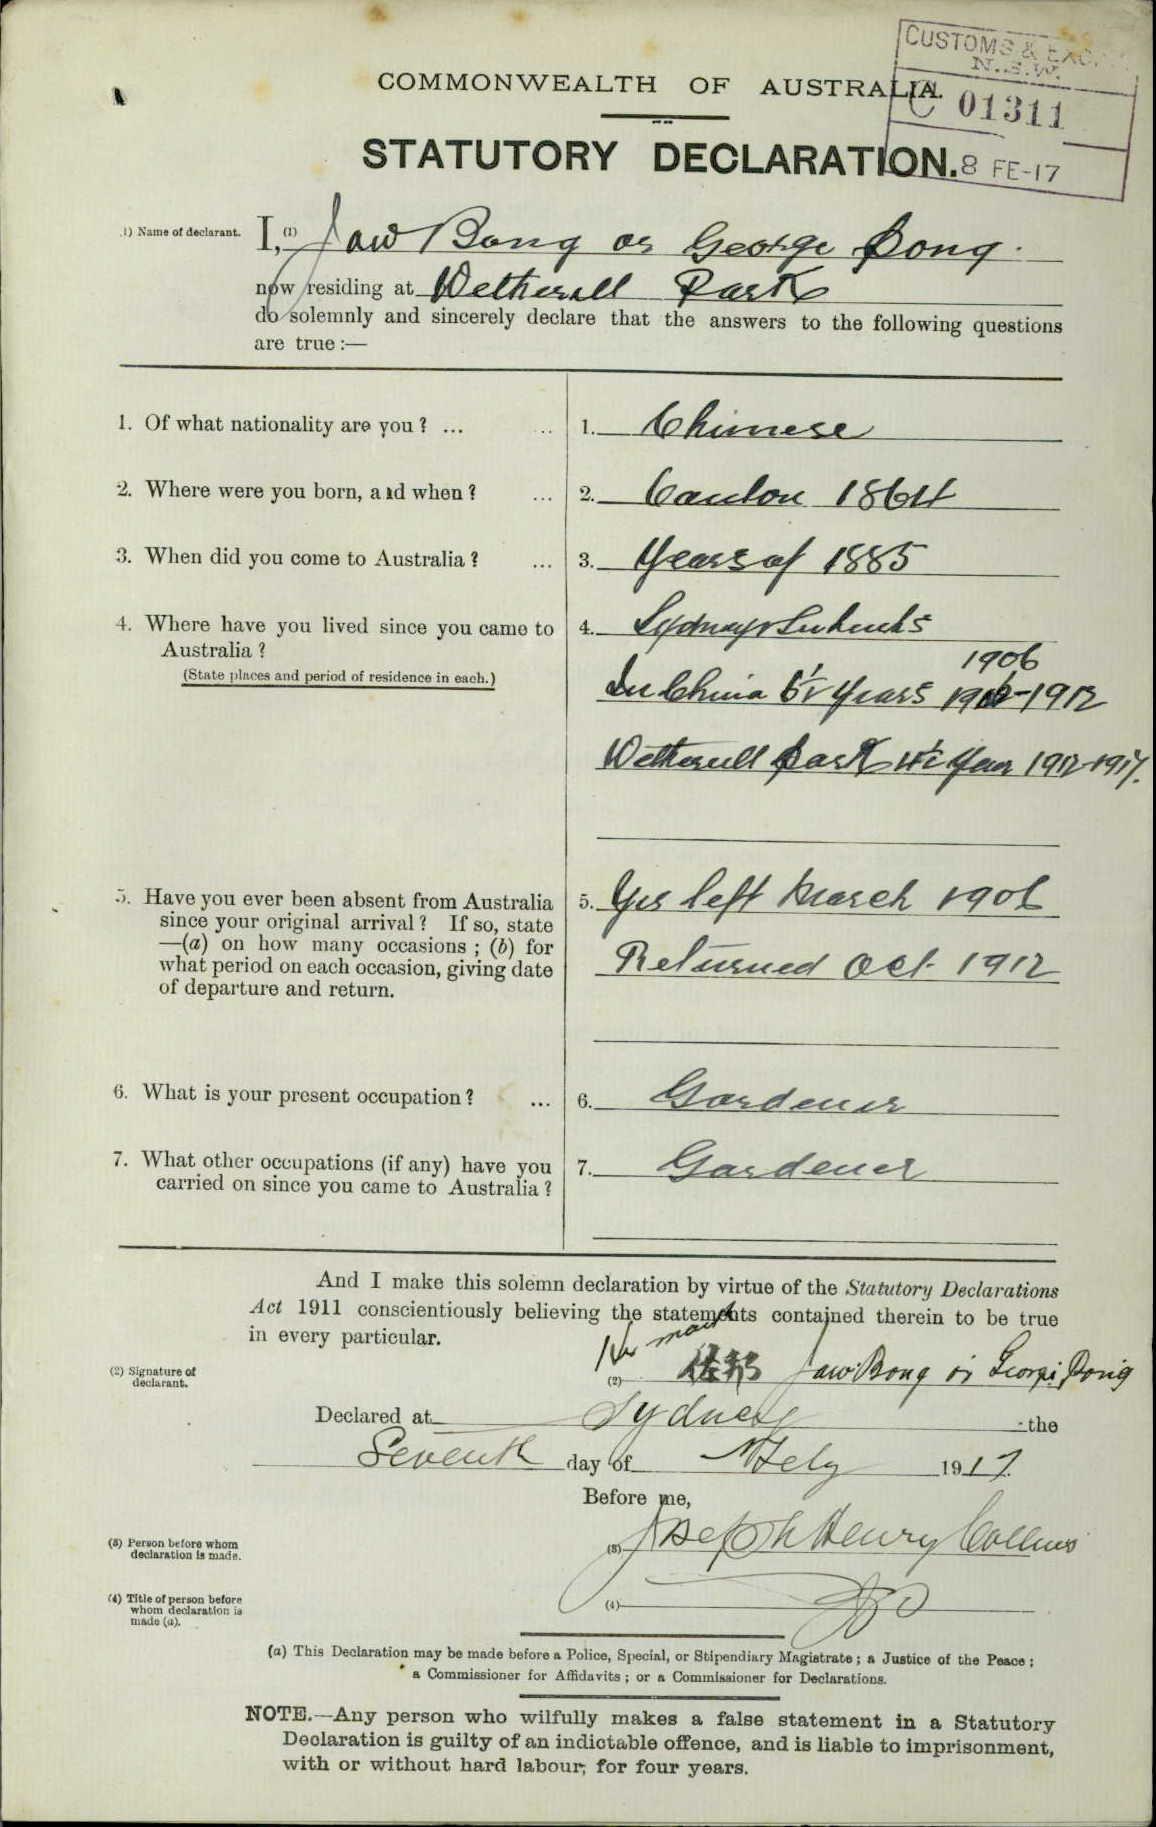 CUSTOMS & EXC
N.S.W.
C 01311
8 FE-17
COMMONWEALTH OF AUSTRALIA.
STATUTORY DECLARATION.
1) Name of declarant. I, (1) Jaw Bong or George Bong.
now residing at Wetherill Park
do solemnly and sincerely declare that the answers to the following questions
are true :—
1. Of what nationality are you ? ... ... 1. Chinese
2. Where were you born, and when ? ... 2. Canton 1864
3. When did you come to Australia ? ... 3. Years of 1885
4. Where have you lived since you came to 4. Sydney & Suburbs
Australia ?
(State places and period of residence in each.)
1906
In China 6½ Years 1912-1912
Wetherill Park 4½ Year 1912-1917.
5. Have you ever been absent from Australia 5. Yes left March 1906
since your original arrival ? If so, state
—(a) on how many occasions ; (b) for
what period on each occasion, giving date Returned Oct 1912
of departure and return.
6. What is your present occupation ? ... 6. Gardener
7. What other occupations (if any) have you 7. Gardener
carried on since you came to Australia ?
And I make this solemn declaration by virtue of the Statutory Declarations
Act 1911 conscientiously believing the statements contained therein to be true
in every particular.
His mark
(2) Signature of (2) Jaw Bong or George Bong
declarant.
Declared at Sydney the
Seventh day of Feby 1917.
Before me,
(3) Person before whom (3) Joseph Henry Collins
declaration is made.
(4) Title of person before (4) JP
whom declaration is
made (a).
(a) This Declaration may be made before a Police, Special, or Stipendiary Magistrate ; a Justice of the Peace ;
a Commissioner for Affidavits ; or a Commissioner for Declarations.
NOTE.—Any person who wilfully makes a false statement in a Statutory
Declaration is guilty of an indictable offence, and is liable to imprisonment,
with or without hard labour, for four years.